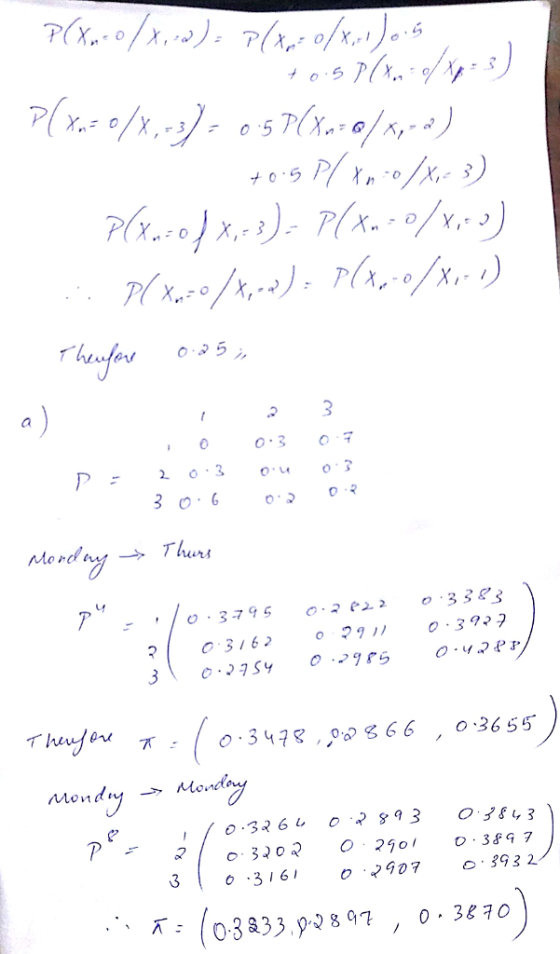 P(Xn=0/X1=2) = P(Xn=0/X1=1)0.5
+ 0.5 P(Xn=0/X1=3)
P(Xn=0/X1=3) = 0.5P(Xn=0/X1=2)
+0.5 P(Xn=0/X1=3)
P(Xn=0/X1=3) = P(Xn=0/X1=2)
∴ P(Xn=0/X1=2) = P(Xn=0/X1=1)
Therefore 0.25
a)
1 2 3
1 0 0.3 0.7
P = 2 0.3 0.4 0.3
3 0.6 0.2 0.2
Monday → Thurs
1 0.3795 0.2822 0.3383
P4 = 2 0.3162 0.2911 0.3927
3 0.2754 0.2985 0.4288
Therefore π = (0.3478, 0.2866, 0.3655)
Monday → Monday
1 0.3264 0.2893 0.3843
P8 = 2 0.3202 0.2901 0.3897
3 0.3161 0.2907 0.3932
∴ π = (0.3233, 0.2897, 0.3870)